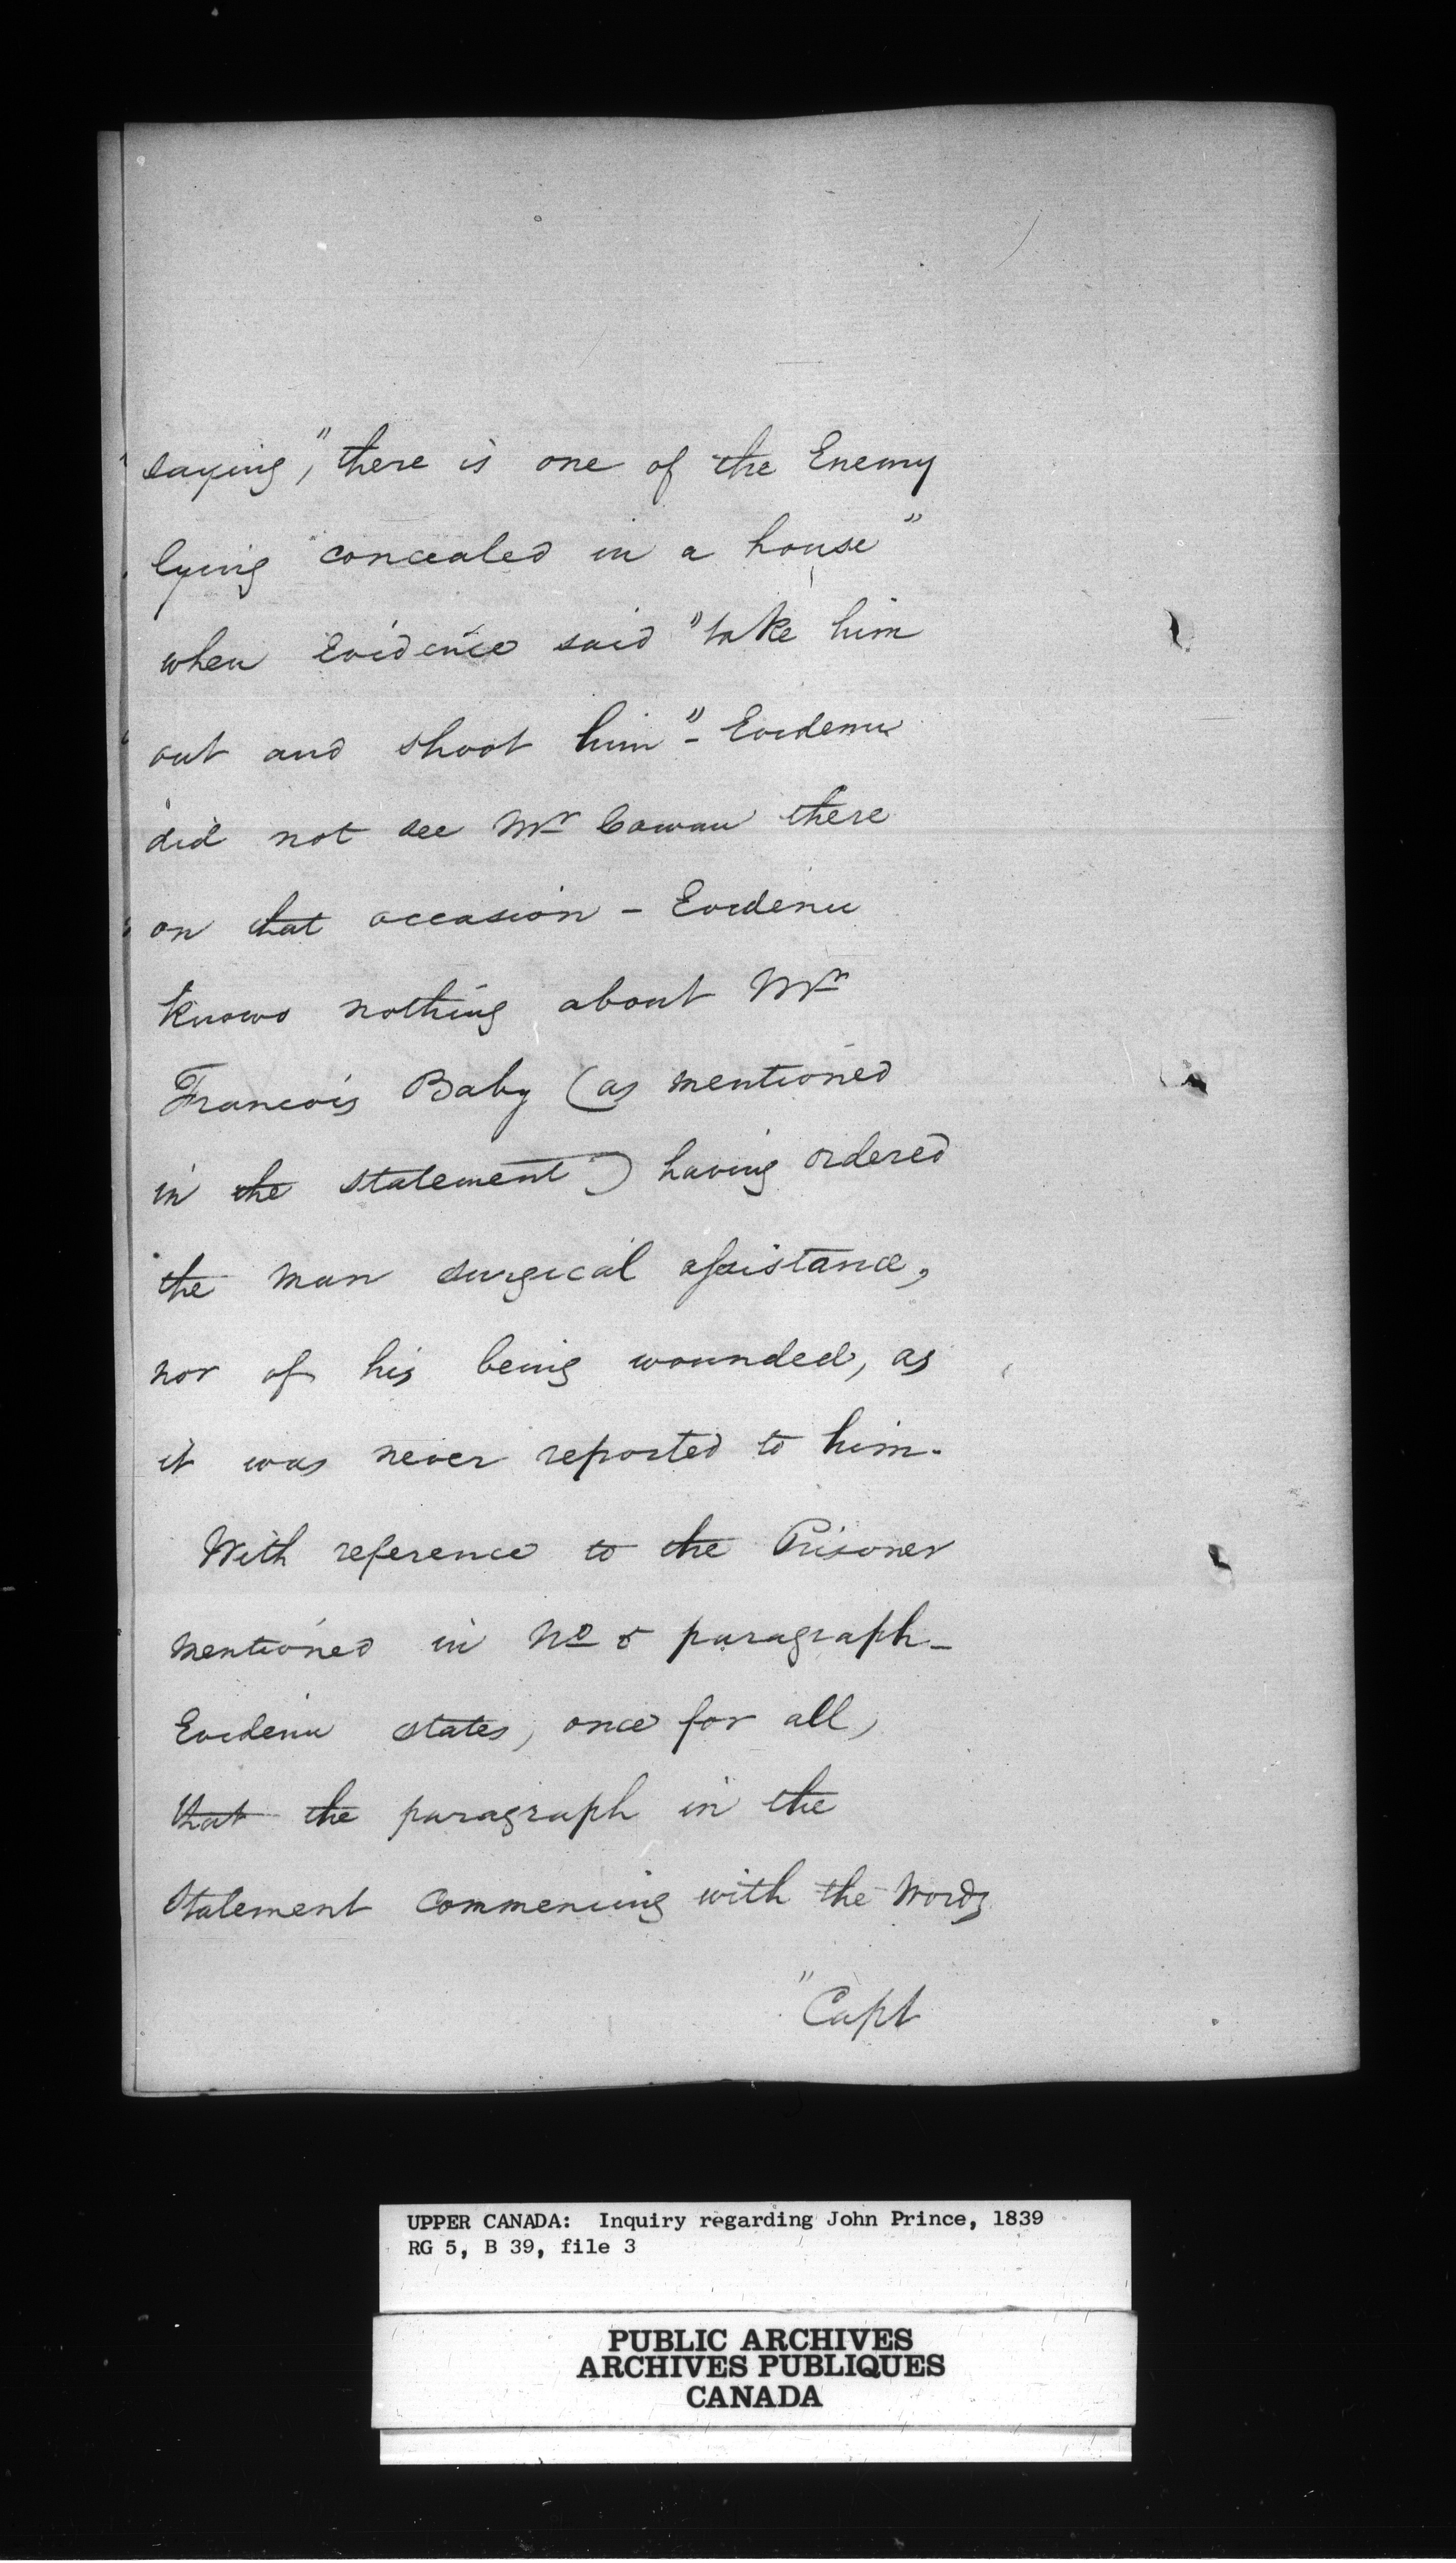 saying, "there is one of the Enemy
lying concealed in a house"
when Evidence said "take him
out and shoot him" - Evidence
did not see Mr Cowan there
on that occasion - Evidence
knows nothing about Mr
Francois Baby (as mentioned
in the statement) having ordered
the man surgical assistance,
nor of his being wounded, as
it was never reported to him.
With reference to the Prisoner
mentioned in No 5 paragraph -
Evidence states, once for all,
that the paragraph in the
Statement commencing with the words
"Capt
UPPER CANADA: Inquiry regarding John Prince, 1839
RG 5, B 39, file 3
PUBLIC ARCHIVES
ARCHIVES PUBLIQUES
CANADA